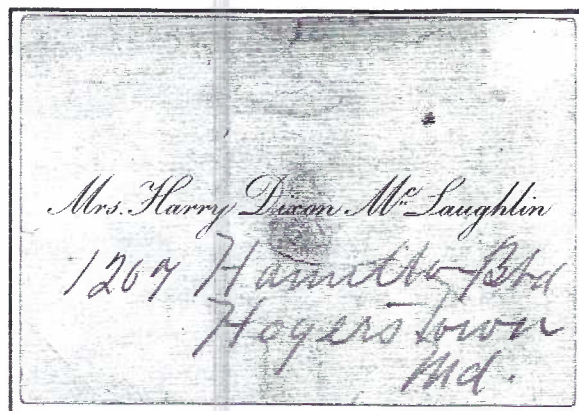 Mrs. Harry Dixon McLaughlin
1207 Hamilton Blvd
Hagerstown
Md.